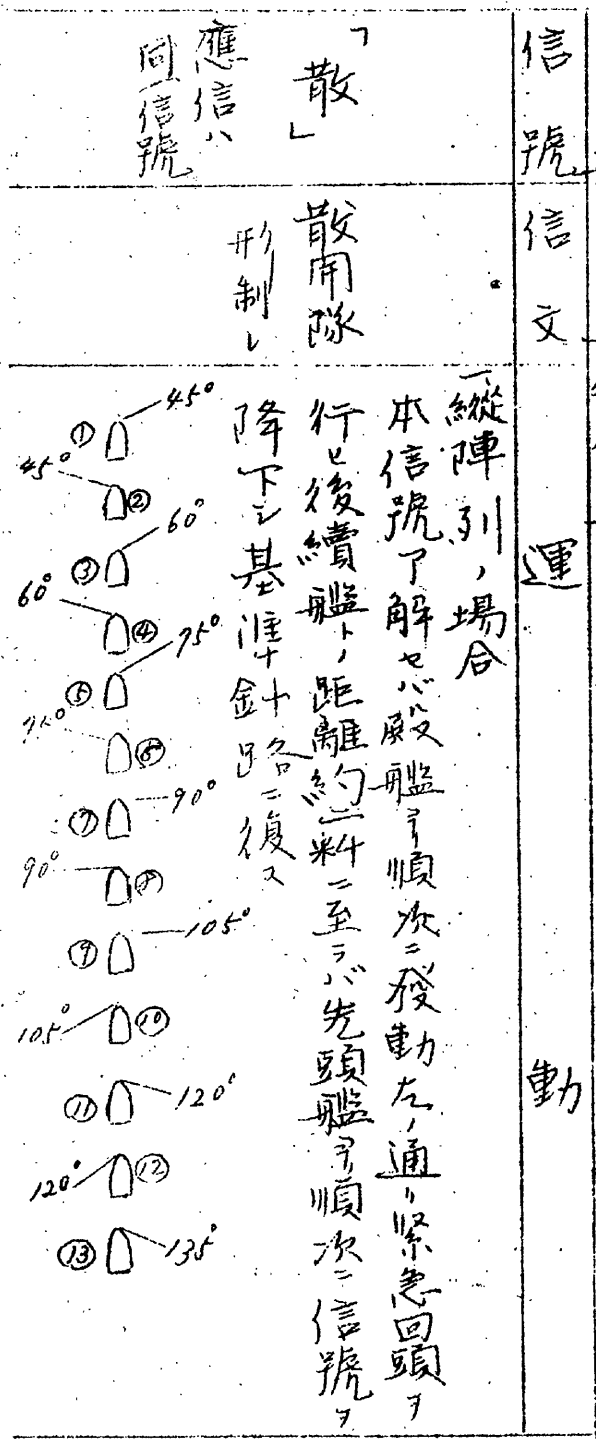 信號
信文
運動
「散」
應信ハ
同一信號
散開隊
形制レ
一、縱陣列ノ場合
本信號了解セバ殿艦ヨリ順次ニ發動左ノ通リ緊急回頭ヲ
行ヒ後續艦トノ距離約二粁ニ至ラバ先頭艦ヨリ順次ニ信號ヲ
降下シ基準針路ニ復ス
① 45°
45° ②
③ 60°
60° ④
⑤ 75°
75° ⑥
⑦ 90°
90° ⑧
⑨ 105°
105° ⑩
⑪ 120°
120° ⑫
⑬ 135°